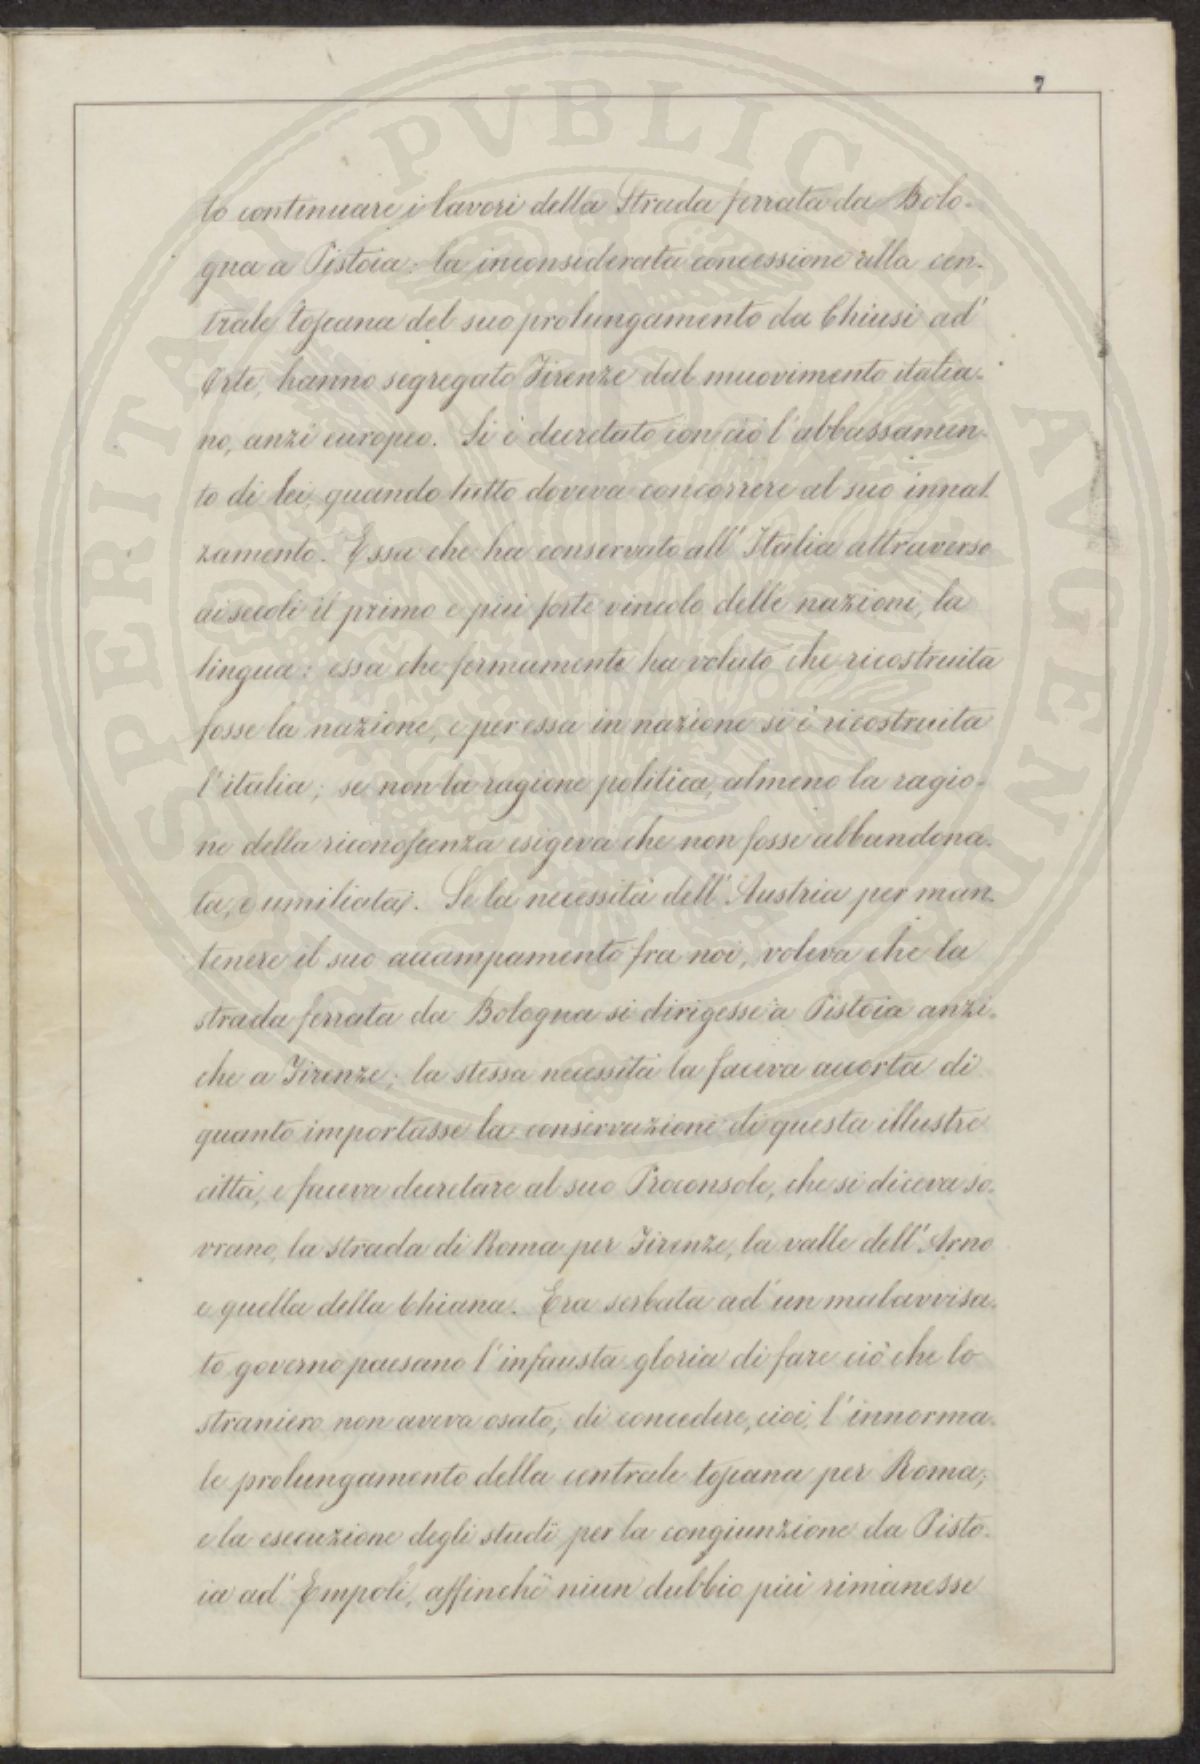 7
PROSPERITATI PVBLICAE AVGENDAE
to continuare i lavori della Strada ferrata da Bolo-
gna a Pistoia: la inconsiderata concessione alla cen-
trale toscana del suo prolungamento da Chiusi ad'
Orte, hanno segregato Firenze dal muovimento italia-
no, anzi europeo. Si è decretato con ciò l'abbassamen-
to di lei, quando tutto doveva concorrere al suo innal
zamento. Essa che ha conservato all'Italia attraverso
ai secoli il primo e più forte vincolo delle nazioni, la
lingua: essa che fermamente ha voluto che ricostruita
fosse la nazione, e per essa in nazione si è ricostruita
l'italia; se non la ragione politica, almeno la ragio-
ne della riconoscenza esigeva che non fosse abbandona-
ta, e umiliata. Se la necessità dell'Austria per man-
tenere il suo accampamento fra noi, voleva che la
strada ferrata da Bologna si dirigesse a Pistoia anzi-
che a Firenze; la stessa necessità la faceva accorta di
quanto importasse la conservazione di questa illustre
città, e faceva decretare al suo Proconsole, che si diceva so-
vrano, la strada di Roma per Firenze, la valle dell'Arno
e quella della Chiana. Era serbata ad'un malavvisa-
to governo paesano l'infausta gloria di fare ciò che lo
straniero non aveva osato; di concedere, cioè, l'innorma-
le prolungamento della centrale toscana per Roma;
e la esecuzione degli studî per la congiunzione da Pisto-
ia ad' Empoli, affinchè niun dubbio più rimanesse